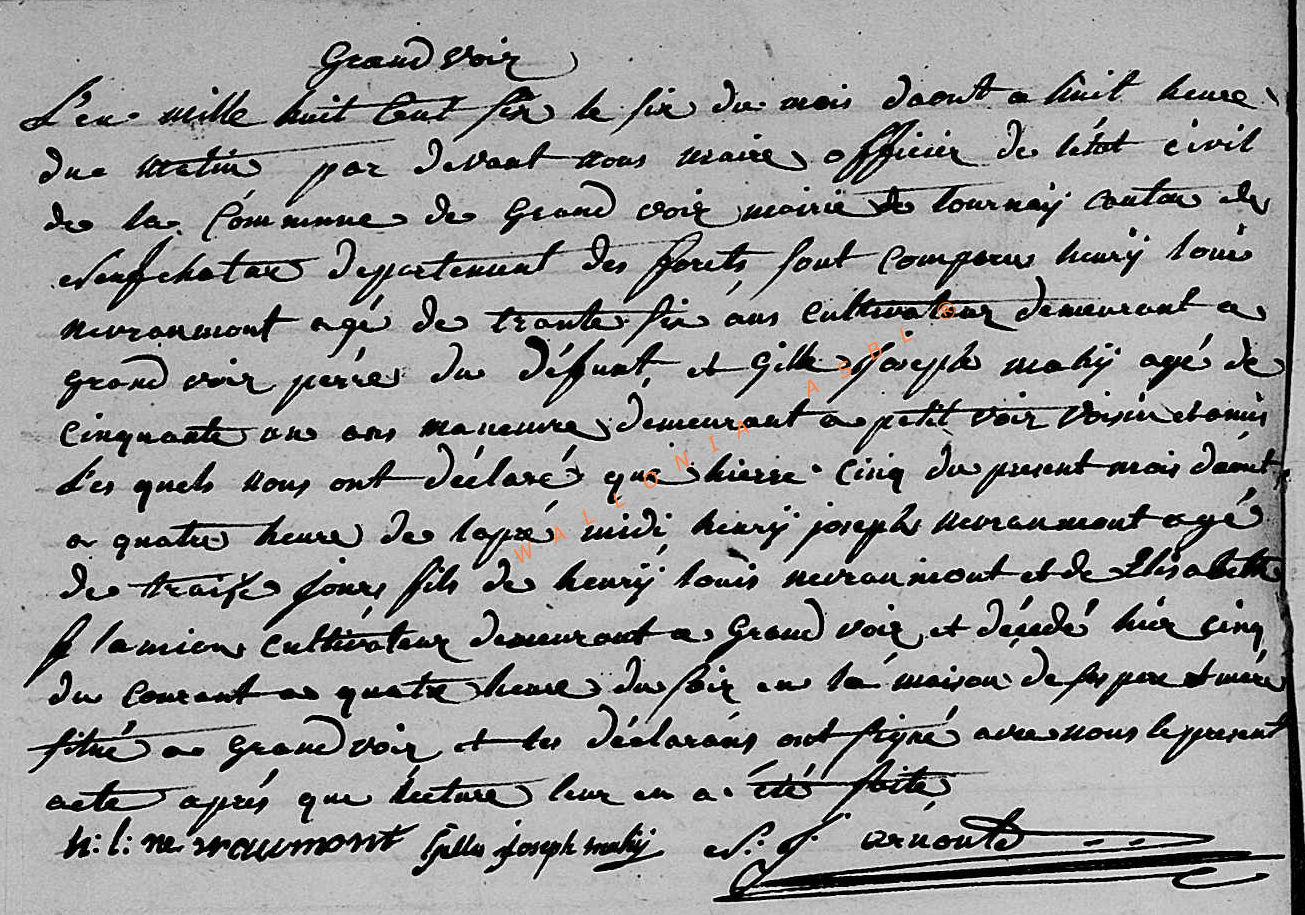 Grand voir
L'en mille huit Cent six le six du mois daout a huit heure
du matin par devant nous maire officier de létat civil
de la Commune de Grand voir mairie de tournay canton de
Neufchatau departement des forets sont comparu henry louis
nevraumont agé de trante six ans cultivateur demeurant a
grand voir perre du défunt et Gille Joseph mahy agé de
cinquante un ans maneuvre demeurant a petit voir voisin et amis
Les quels nous ont déclaré que hierre cinq du present mois daout
a quatre heure de lapré midi henry joseph nevraumont agé
de traise jours fils de henry louis nevraumont et de Elisabeth
lamion cultivateur demeurant a Grand voir et décédé hier cinq
du courant a quatre heure du soir en la maison de ses pere et mére
situé a Grand voir et les déclarans ont signé avec nous le present
acte aprés que lecture leur en a été faite
h: l: nevraumont Gille joseph mahy N: J: arnould
WALLONIA ASBL ©